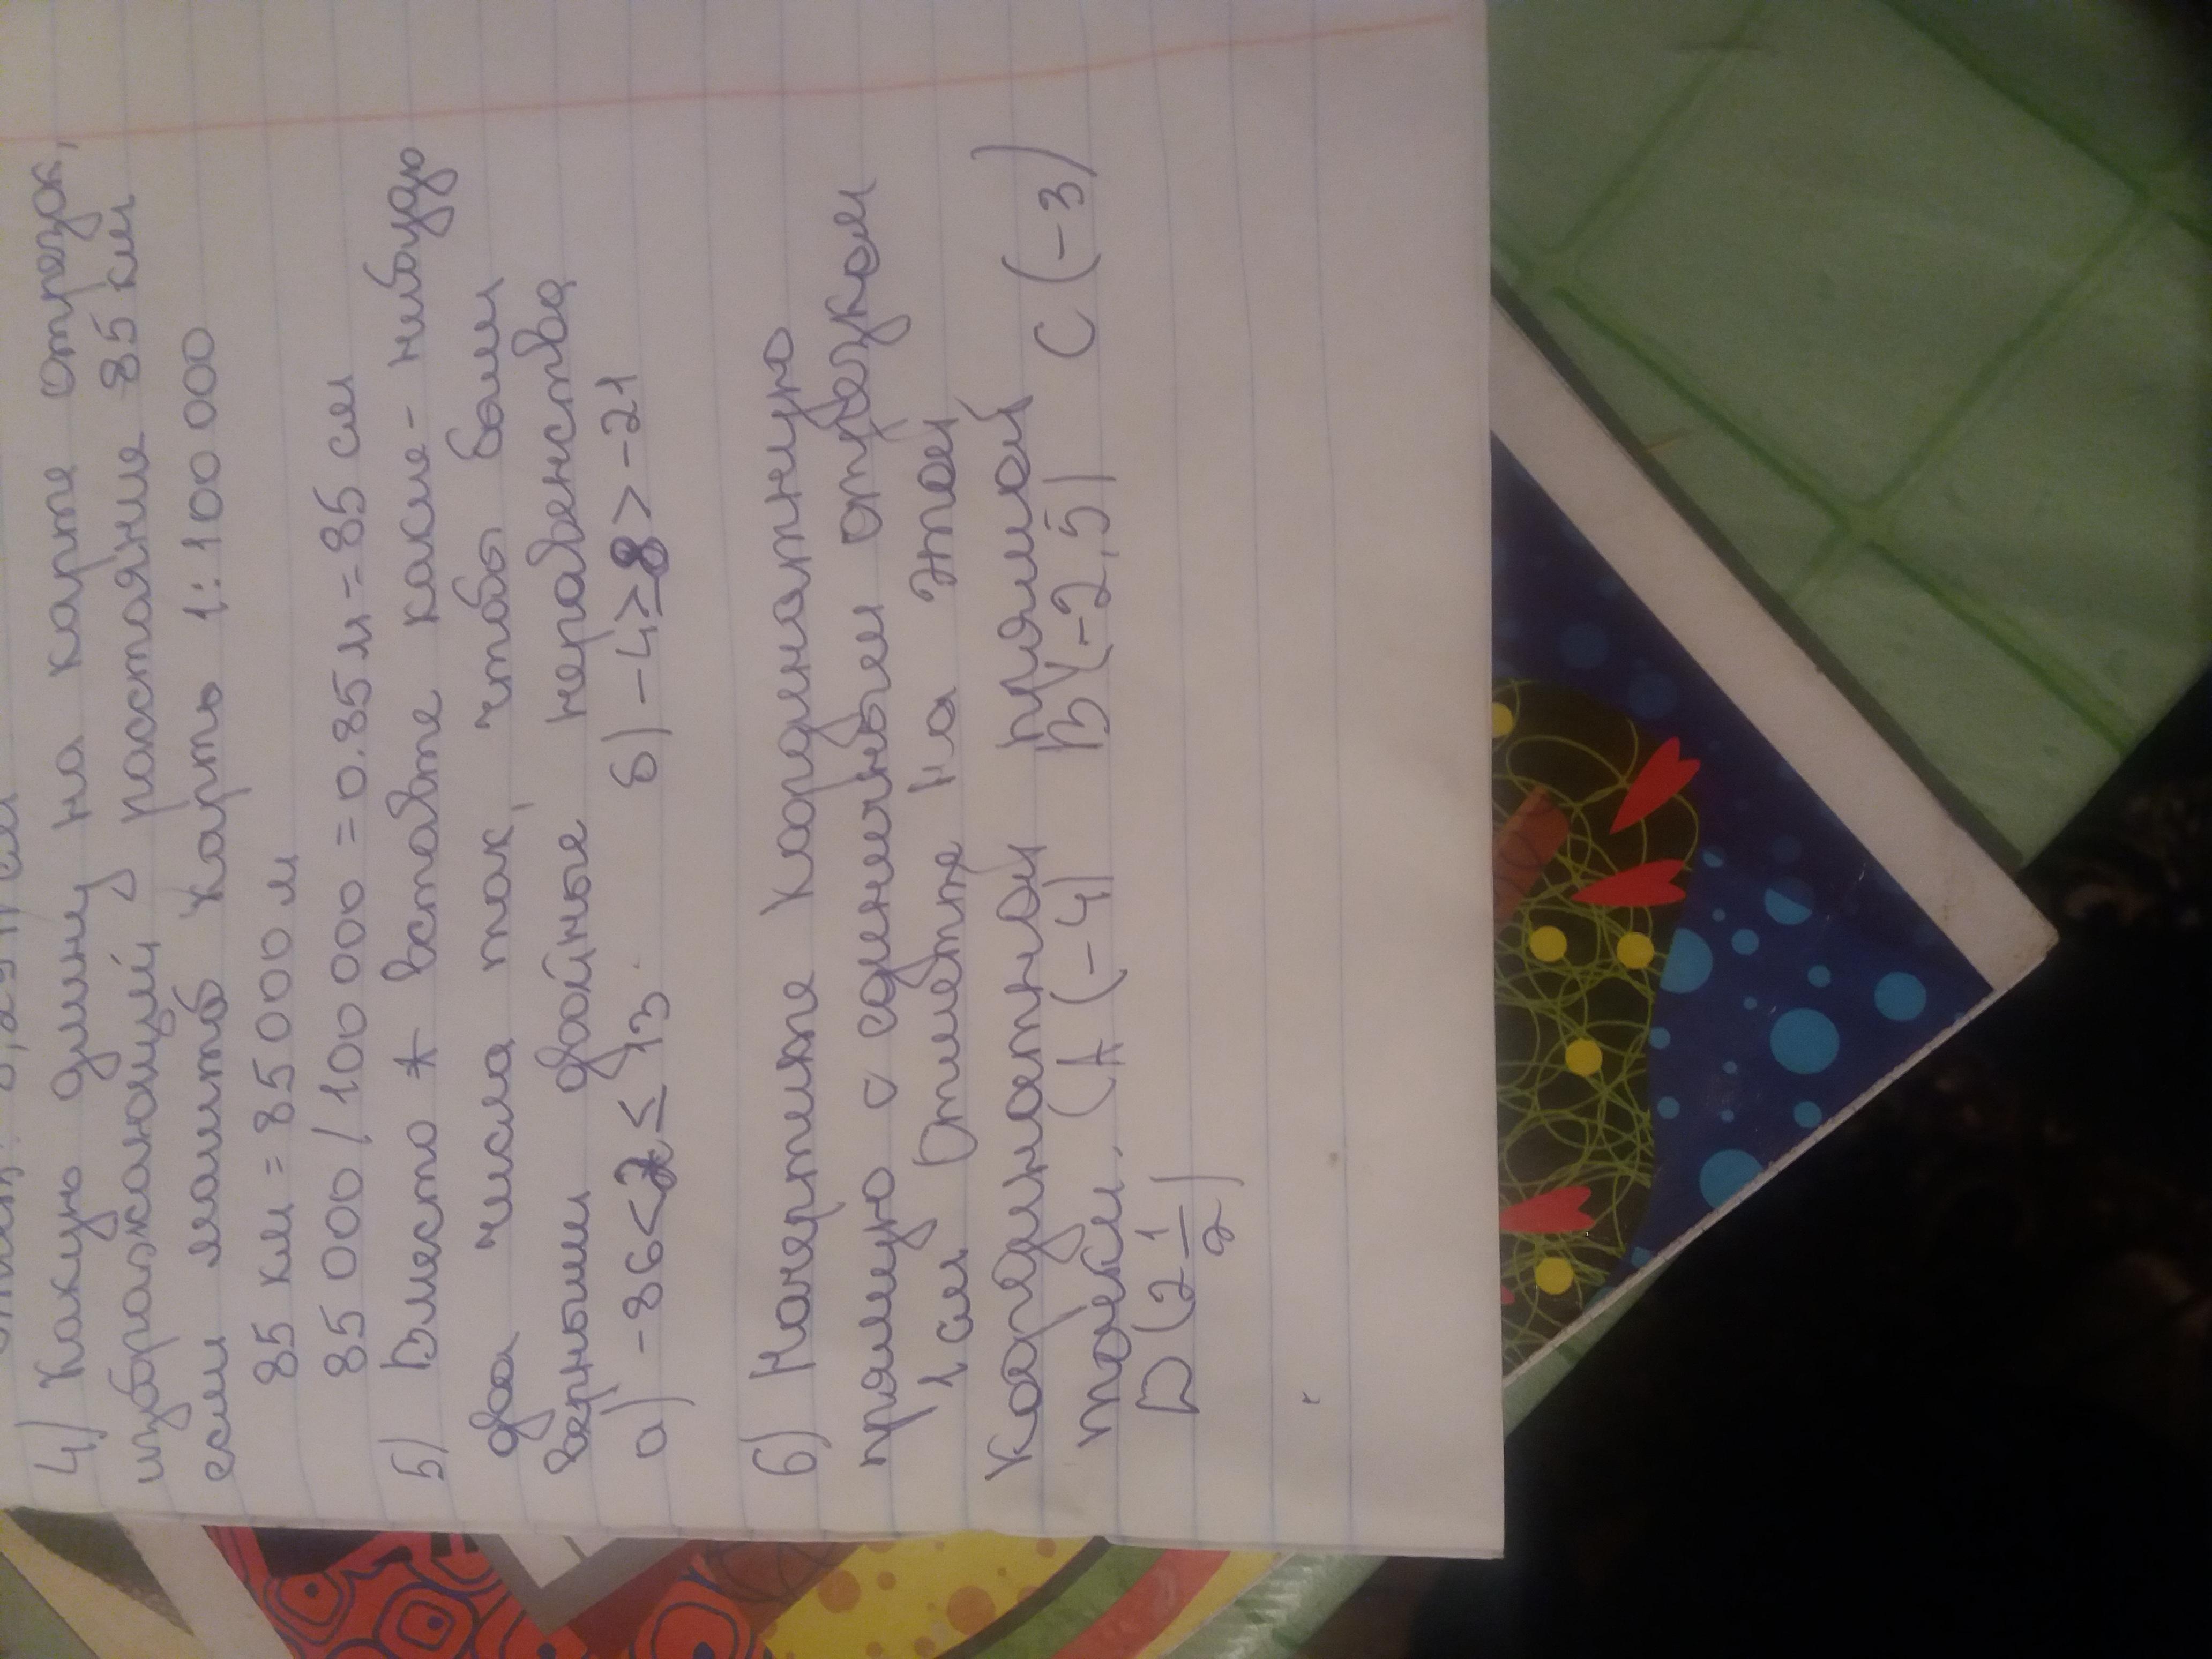 4) Какую длину на карте отрезок,
изображающий расстояние 85 км
если масштаб карты 1:100 000
85 км = 85 000 м
85 000 / 100 000 = 0.85 м = 85 см
5) Вместо * вставте какие-нибудь
два числа так, чтобы были
верными двойные неравенства
а) -86 < 2 ≤ 13. б) -4 ≥ 8 > -21
6) Начертите кординатную
прямую с единичным отрезком
1 см Отметте на этой
координатной прямой
точки. (А (-4) В (-2,5) С (-3)
D (2 1/2)